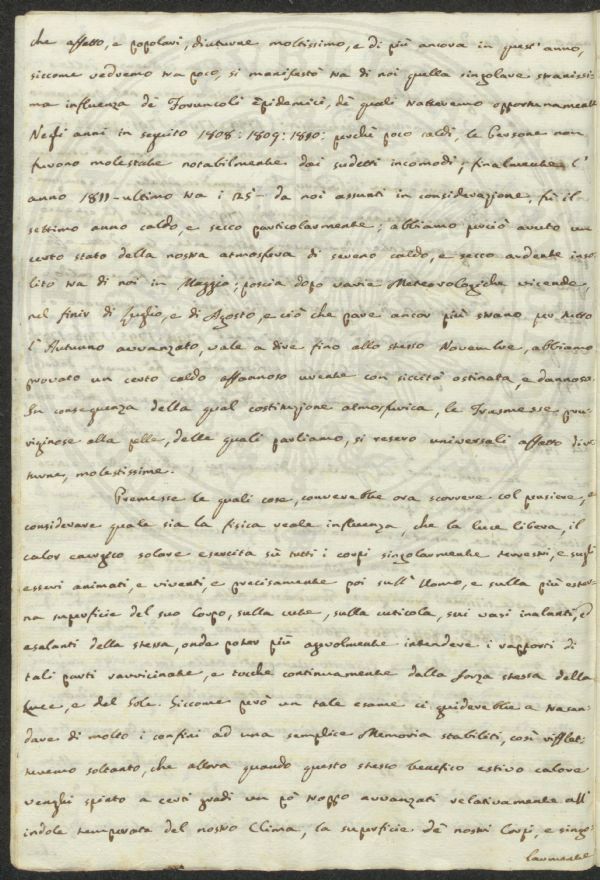 che affatto, e popolari, diuturne moltissimo, e di più ancora in quest'anno,
siccome vedremo tra poco, si manifestò tra di noi quella singolare stranissi
ma influenza de' Foruncoli Epidemici, de' quali tratteremo opportunamente
Negli anni in seguito 1808: 1809: 1810: perchè poco caldi, le Persone non
furono molestate notabilmente dai sudetti incomodi; finalmente l'
anno 1811 - ultimo tra i 25 - da noi assunti in considerazione, fù il
settimo anno caldo, e secco particolarmente; abbiamo perciò avuto un
certo stato della nostra atmosfera di sereno caldo, e secco ardente inso
lito tra di noi in Maggio; poscia dopo varie Meteorologiche vicende,
nel finir di Luglio, e di Agosto, e ciò che pare ancor più strano per tutto
l'Autunno avvanzato, vale a dire fino allo stesso Novembre, abbiamo
provato un certo caldo affannoso urente con siccità ostinata, e dannosa.
In conseguenza della qual costituzione atmosferica, le Trasmesse pru
riginose alla pelle, delle quali parliamo, si resero universali affatto diu
turne, molestissime.
Premesse le quali cose, converrebbe ora scorrere col pensiere, e
considerare quale sia la fisica reale influenza, che la luce libera, il
calor energico solare esercita sù tutti i corpi singolarmente terrestri, e sugli
esseri animati, e viventi, e precisamente poi sull'Uomo, e sulla più ester
na superficie del suo Corpo, sulla cute, sulla cuticola, sui vasi inalanti, ed
esalanti della stessa, onde poter più agevolmente intendere i rapporti di
tali parti ravvicinate, e tocche continuamente dalla forza stessa della
Luce, e del Sole. Siccome però un tale esame ci guiderebbe a trascen
dere di molto i confini ad una semplice Memoria stabiliti, così riflet
teremo soltanto, che allora quando questo stesso benefico estivo calore
venghi spinto a certi gradi un pò troppo avvanzati relativamente all'
indole temperata del nostro Clima, la superficie de' nostri Corpi, e singo
larmente